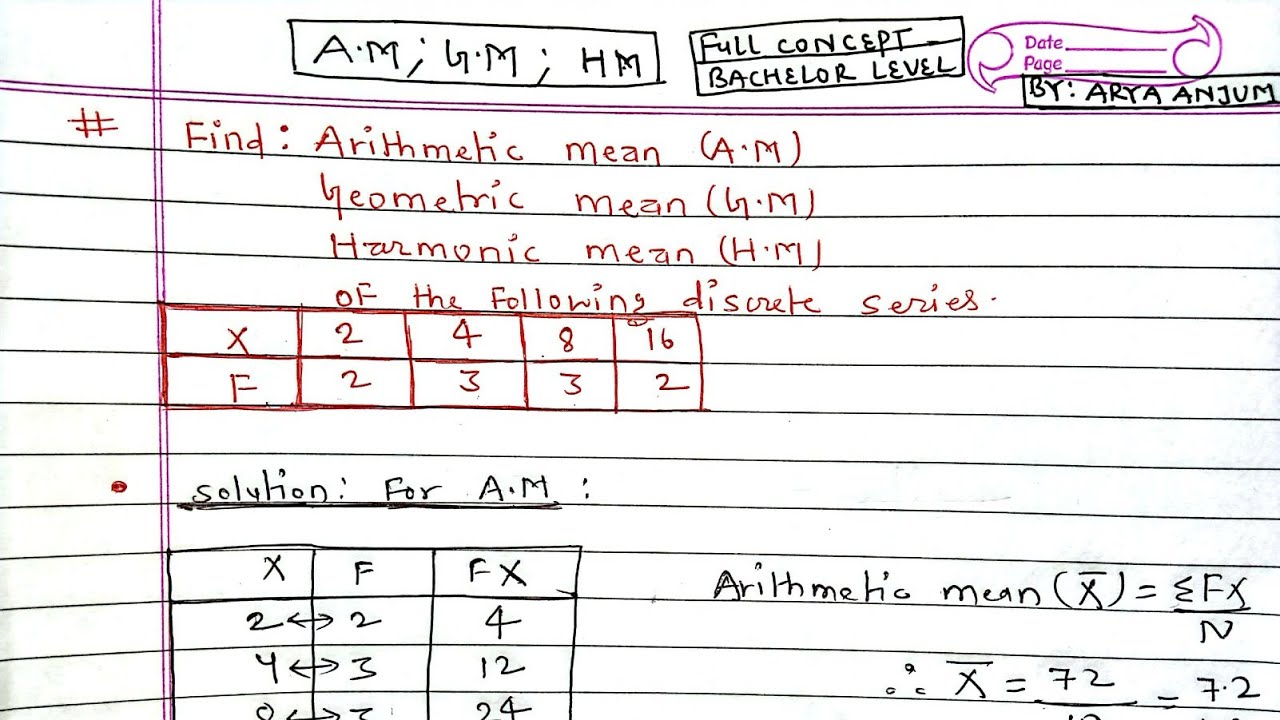 A.M ; G.M ; HM
FULL CONCEPT
BACHELOR LEVEL
Date
Page
BY: ARYA ANJUM
# Find: Arithmetic mean (A.M)
Geometric mean (G.M)
Harmonic mean (H.M)
OF the Following discrete series.
X 2 4 8 16
F 2 3 3 2
• Solution: For A.M :
X F FX
2 ↔ 2 4
4 ↔ 3 12
24
Arithmetic mean (X̄) = ΣFX
N
∴ X̄ = 72 = 7.2